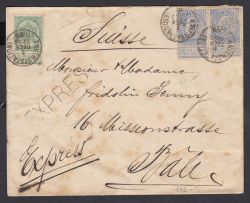 Suisse
Monsieur & Madame
EXPRES
Fridolin Jenny
16 Missionstrasse
Express
Bâle